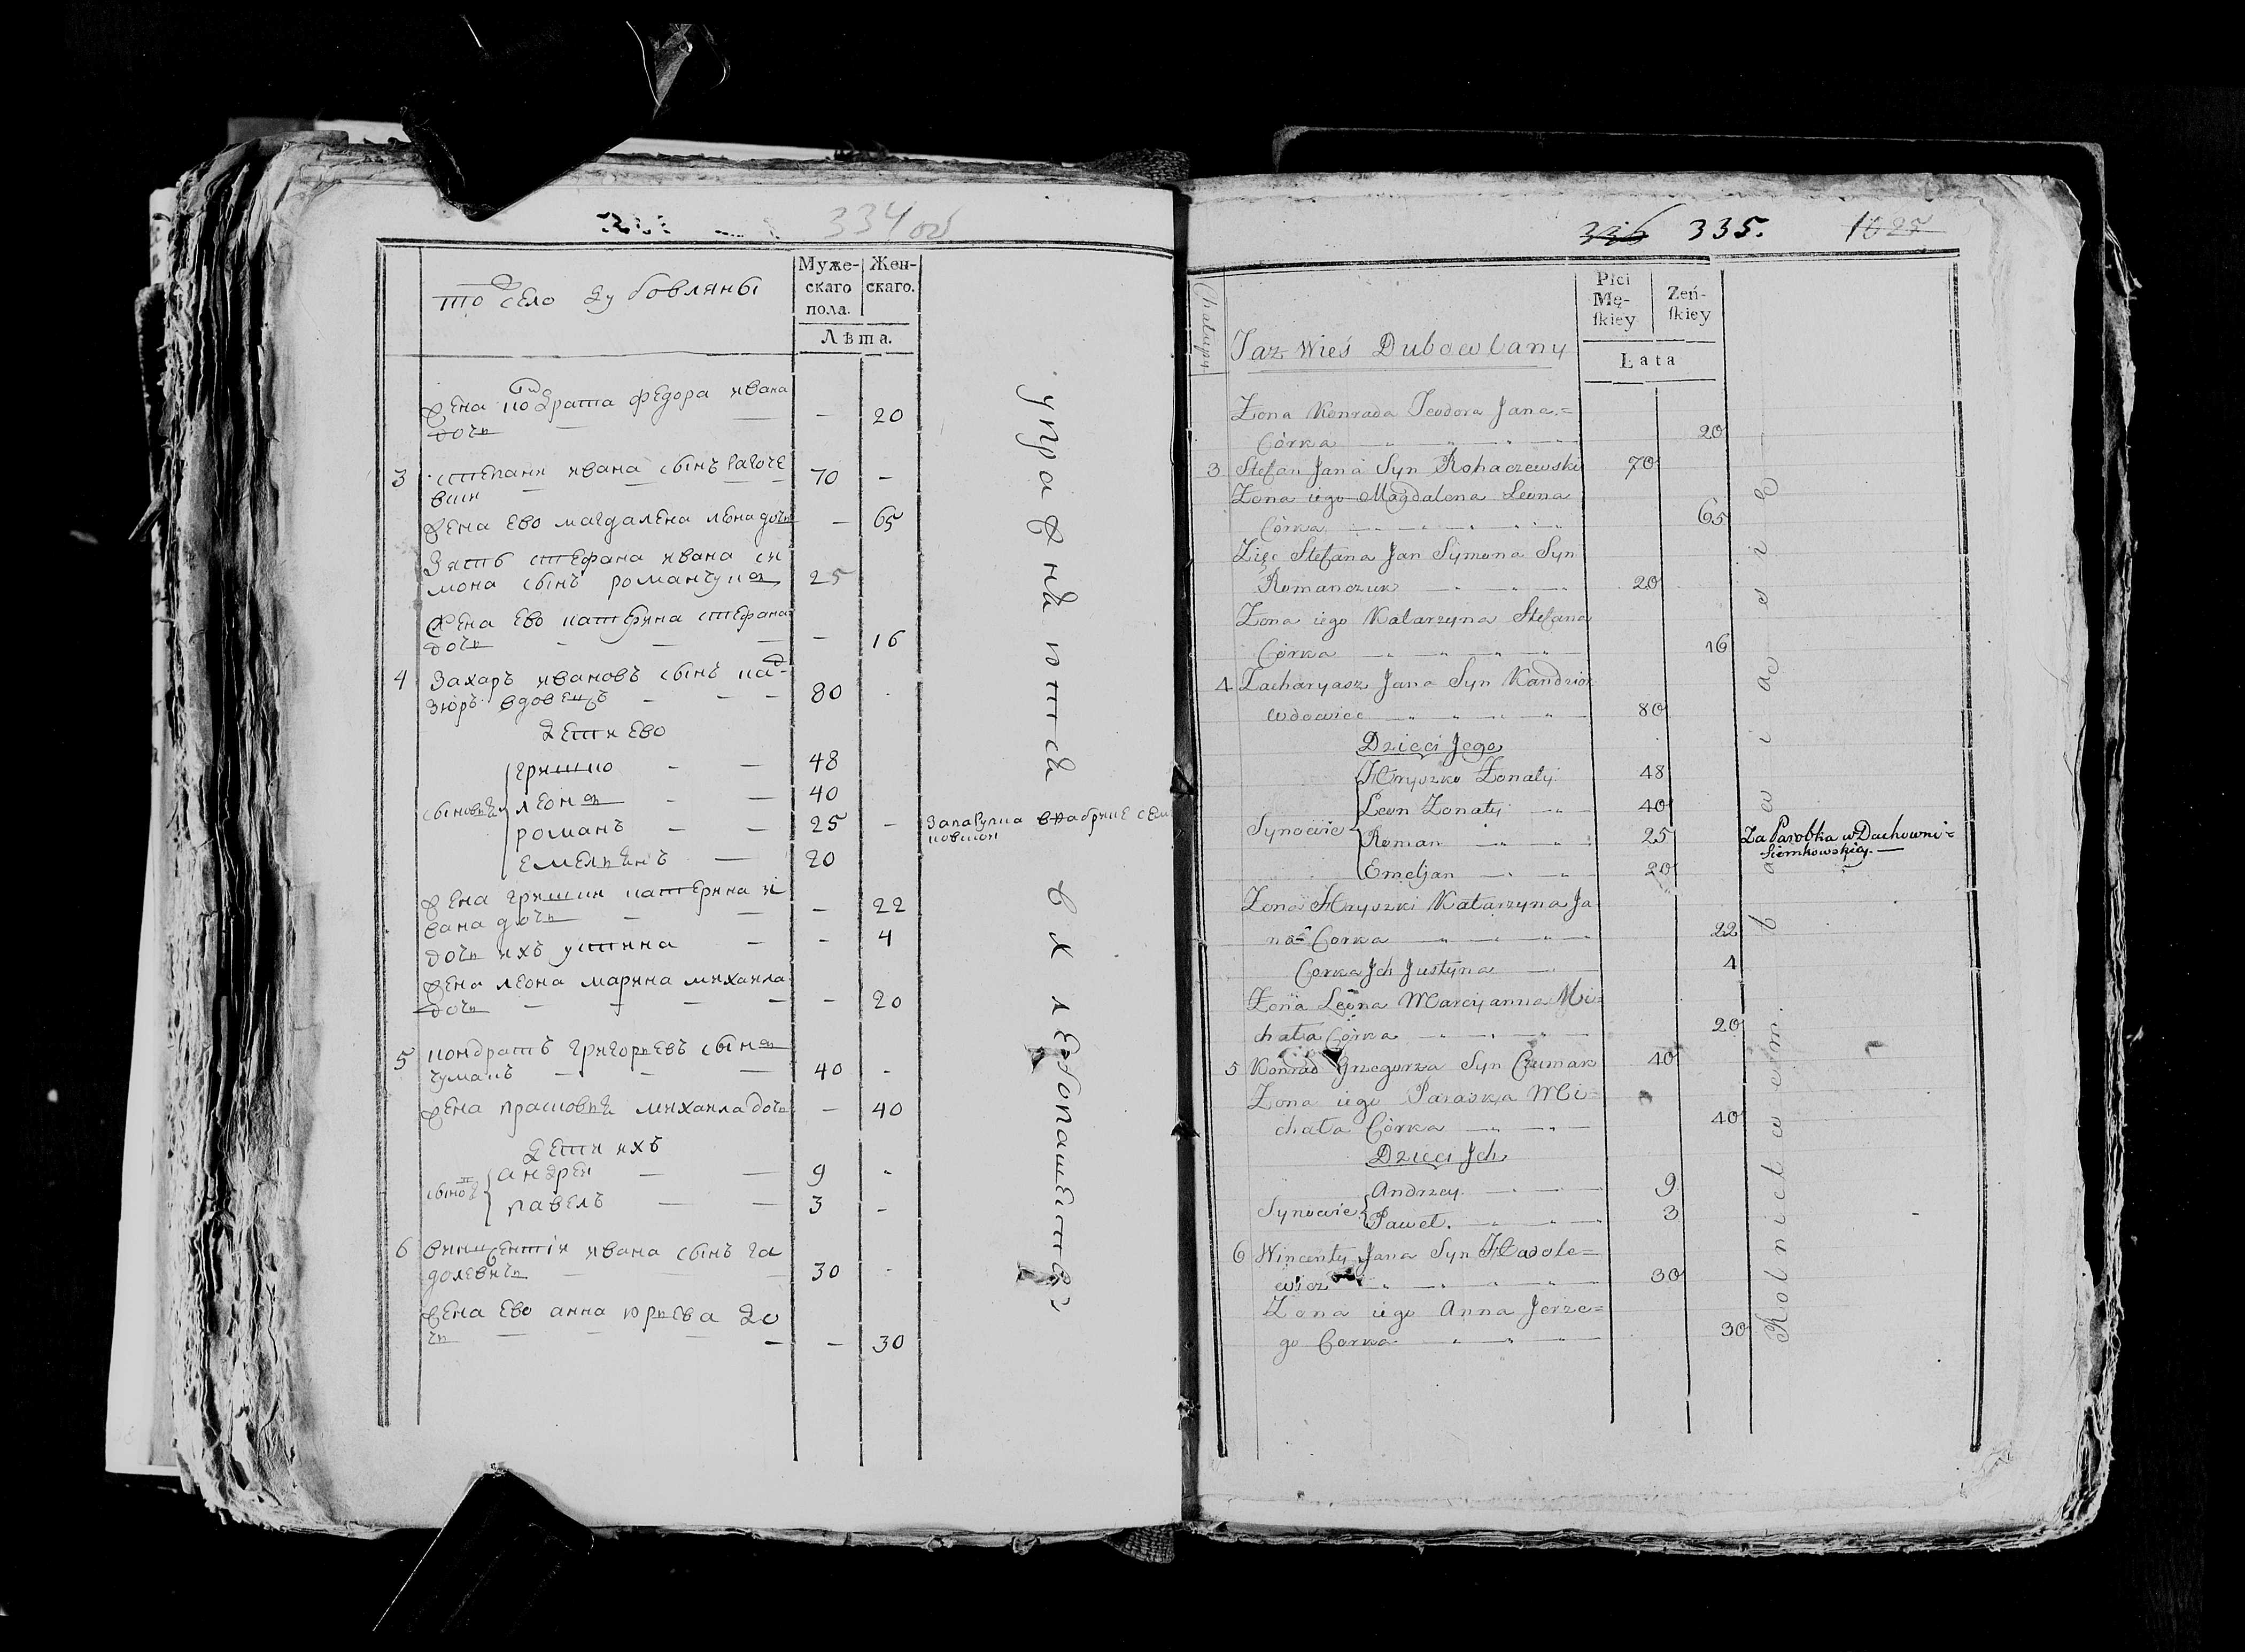 334 об
то село Дубовляны
Муже-
скаго
пола.
Жен-
скаго.
Лѣта.
жена кондрата федора ивана
дочь — 20
3 степани ивана сынъ рагоче
вски 70 —
жена ево магдалена леона дочь — 65
Зять стефана ивана си
мона сынъ романчукъ 25
жена ево катерина стефана
дочь — 16
4 Захаръ ивановъ сынъ кад-
зюръ вдовецъ 80
Дети ево
гришко 48
сыновья леонъ 40
романъ 25 —
емельянъ 20
жена гришки катерина и
вана дочь — 22
дочь ихъ устина — 4
жена леона марина михаила
дочь — 20
5 кондратъ григорьевъ сынъ
чумакъ 40 -
жена прасковья михаила дочь — 40
Дети ихъ
андреи 9 -
сыновья
павелъ 3 -
6 викцентіи ивана сынъ га
долевичь 30 -
жена ево анна юрьева до
чь — 30
упражняются в хлебопашестве
336 335. 1027
Chałupy
Taż Wieś Dubowlany
Płci
Mę-
ſkiey
Żeń-
ſkiey
Lata
Żona Konrada Teodora Jana=
Córka 20
3 Stefan Jana Syn Rohaczewski 70
Żona iego Magdalena Leona
Córka 65
Zięć Stefana Jan Symona Syn
Romanczuk 20
Żona iego Katarzyna Stefana
Córka 16
4 Zacharyasz Jana Syn Kandzior
wdowiec 80
Dzieci Jego
Hryszko Żonaty 48
Leon Żonaty 40
Synowie
Roman 25
Za Parobka w Dachowni=
Siemkowskiey.—
Emeljan 20
Żona Hryszki Katarzyna Ja
na= Corka 22
Corka Jch Justyna 4
Żona Leona Marcyanna Mi=
chała Córka 20
5 Konrad Grzegorza Syn Czumak 40
Żona iego Paraska Mi=
chała Córka 40
Dzieci Jch
Andrzey 9
Synowie
Paweł. 3
6 Wincenty Jana Syn Hadole=
wicz 30
Żona iego Anna Jerze=
go Corka 30
Rolnictwem bawią się